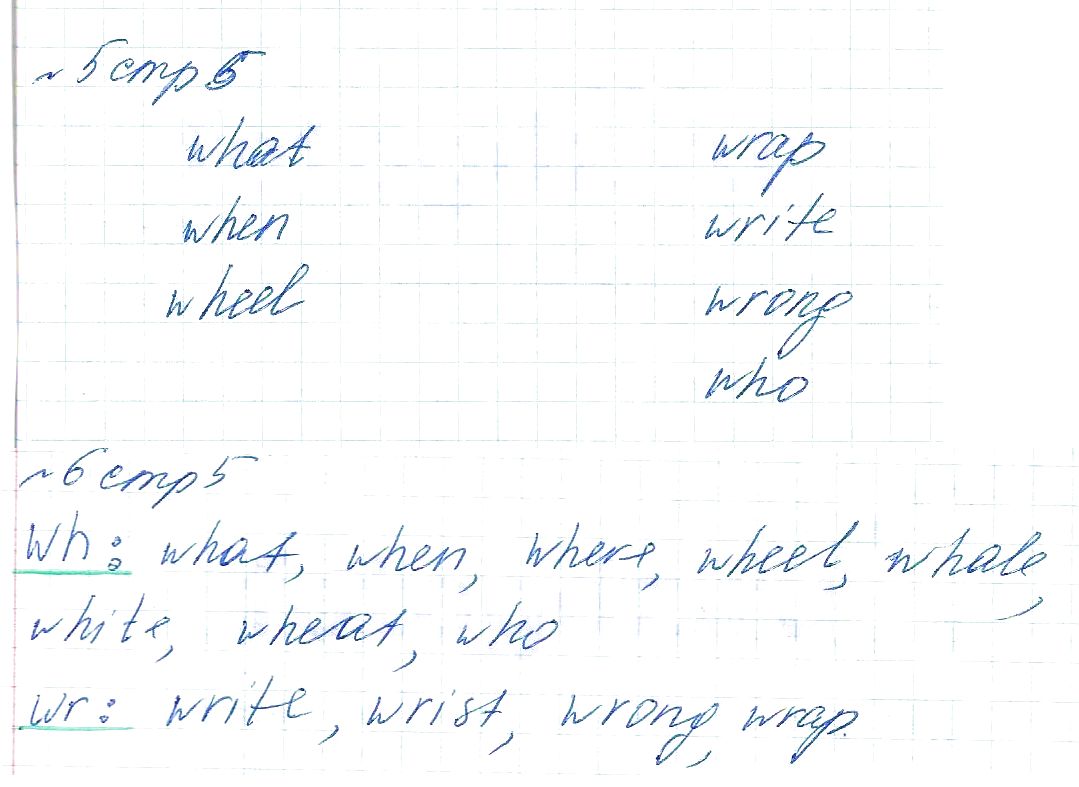 ~5 стр 5
what wrap
when write
wheel wrong
who
~6 стр 5
wh: what, when, where, wheel, whale,
white, wheat, who
wr: write, wrist, wrong, wrap.